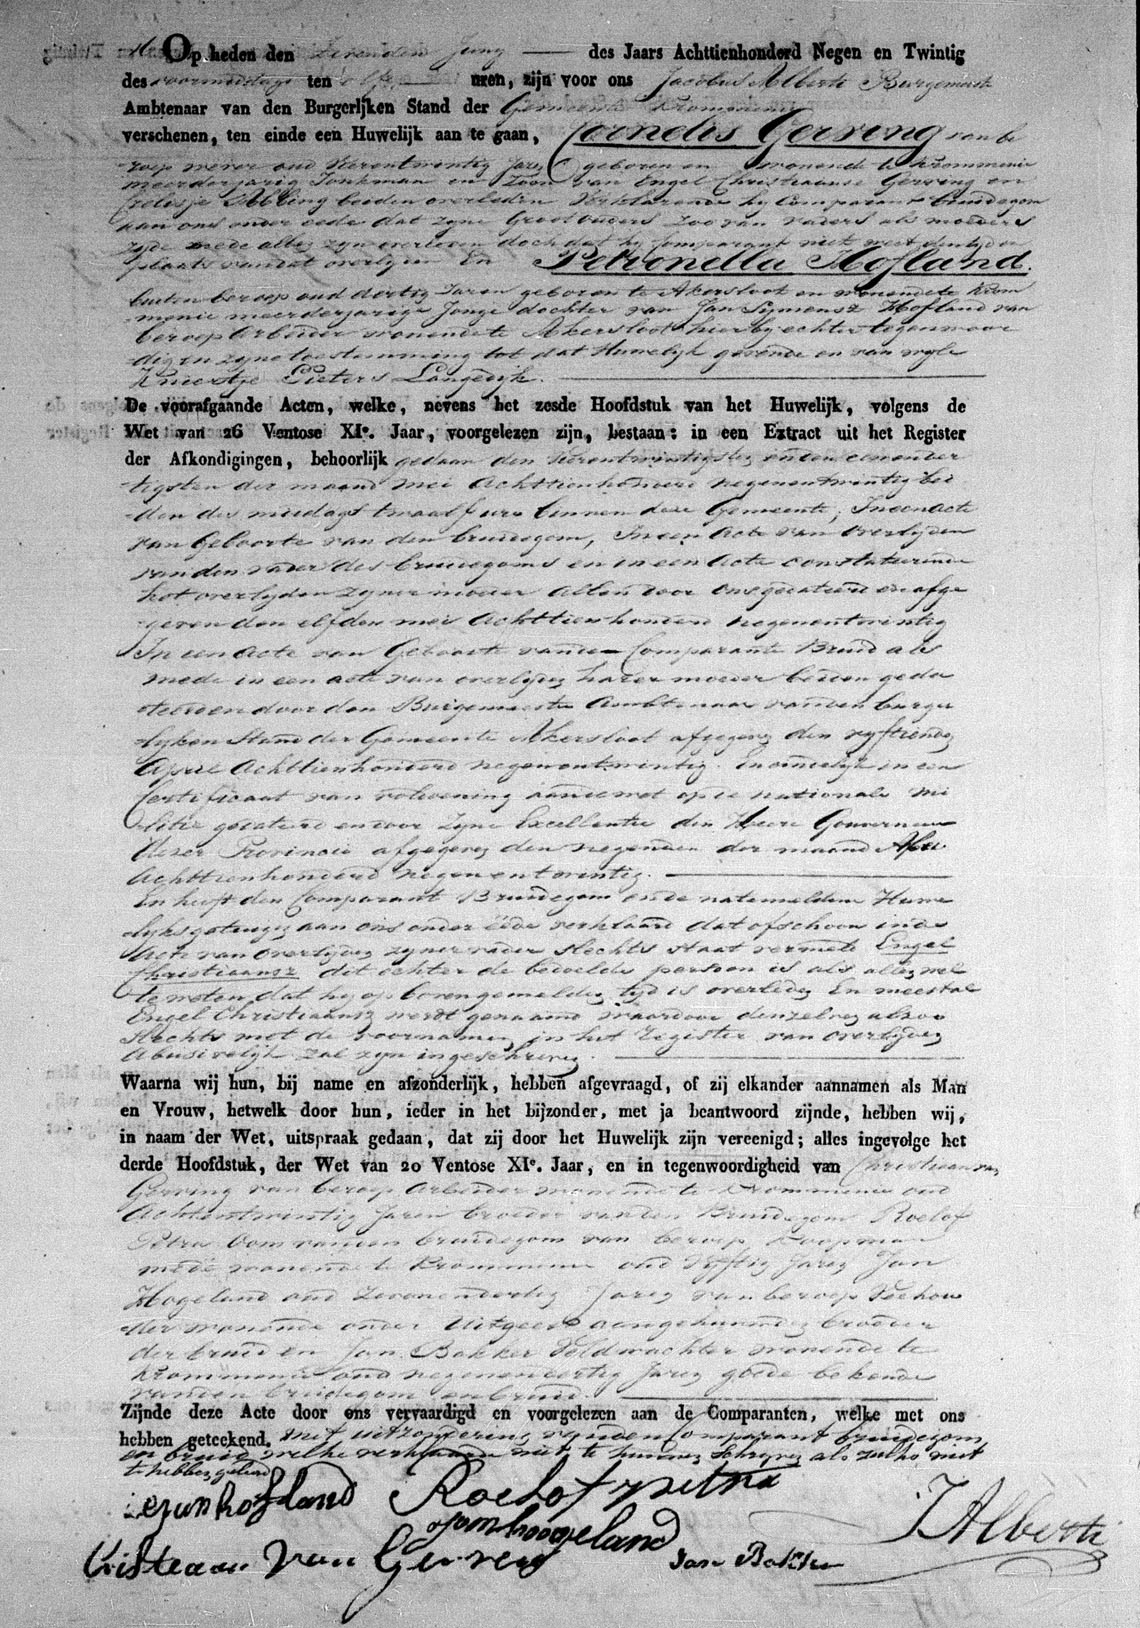 Op heden den Zevenden Juny des Jaars Achttienhonderd Negen en Twintig
des voormiddags ten elf uren, zijn voor ons Jacobus Alberti Burgemeester
Ambtenaar van den Burgerlijken Stand der Gemeente Krommenie
verschenen, ten einde een Huwelijk aan te gaan, Cornelis Gerring van be
roep wever oud Vierentwintig Jaren geboren en wonende te Krommenie
meerderjarig Jonkman en Zoon van Engel Christiaansz Gerring en
Abbing beiden overleden Verklarende hy Comparant Bruidegom
aan ons onder eede dat zyne Grootouders zoo van vaders als moeders
zyde mede alle zyn overleden doch dat hy Comparant niet weet den tyd en
plaats van dat overlyden En Petronella Hofland
buiten beroep oud dertig Jaren geboren te Akersloot en wonende te Krom
menie meerderjarige Jonge dochter van Jan Symensz Hofland van
beroep Arbeider wonende te Akersloot hier by echter tegenwoor
dig en zyne toestemming tot dat Huwelyk gevende en van wyle
Pieters Langedyk.
De voorafgaande Acten, welke, nevens het zesde Hoofdstuk van het Huwelijk, volgens de
Wet van 26 Ventose XIe. Jaar, voorgelezen zijn, bestaan: in een Extract uit het Register
der Afkondigingen, behoorlijk gedaan den Vierentwintigsten en een en der
tigsten der maand Mei Achttienhonderd negenentwintig bei
den des middags twaalf ure binnen deze Gemeente, In een Acte
van Geboorte van den bruidegom, In een Acte van Overlyden
van den vader des bruidegoms en in een Acte constateerende
het overlyden zyner moeder allen door ons gecolateerd en afge
geven den elfden mei Achttienhonderd negenentwintig
In een Acte van Geboorte van de Comparante Bruid als
mede in een acte van overlyden harer moeder beiden geda
door den Burgemeester Ambtenaar van den burger
lyken Stand der Gemeente Akersloot afgegeven den vyftienden
April Achttienhonderd negenentwintig. Eindelyk in een
Certificaat van voldoening aan de wet op de nationale Mi
litie en door Zyne Excellentie den Heere Gouverneur
dezer Provincie afgegeven den negenden der maand April
Achttienhonderd negenentwintig.
En heeft den Comparant Bruidegom en de natemelden Huwe
lyksgetuigen aan ons onder Eede verklaard dat ofschoon in de
Acte van overlyden zyner vader slechts staat vermeld Engel
Christiaansz dit echter de bedoelde persoon is als alle wel
te weten dat hy op bovengemelden tyd is overleden En meestal
Engel Christiaansz werdt genaamd waardoor denzelven alzoo
slechts met de voornamen in het register van overlyden
abusivelyk zal zyn ingeschreven.
Waarna wij hun, bij name en afzonderlijk, hebben afgevraagd, of zij elkander aannamen als Man
en Vrouw, hetwelk door hun, ieder in het bijzonder, met ja beantwoord zijnde, hebben wij,
in naam der Wet, uitspraak gedaan, dat zij door het Huwelijk zijn vereenigd; alles ingevolge het
derde Hoofdstuk, der Wet van 20 Ventose XIe. Jaar, en in tegenwoordigheid van Christiaan van
Gerring van beroep Arbeider wonende te Krommenie oud
Achtentwintig Jaren broeder van den Bruidegom Roelof
Petra Oom van den bruidegom van beroep Koopman
mede wonende te Krommenie oud Vyftig Jaren Jan
Hogeland oud Zevenendertig Jaren van beroep Veehou
der wonende onder Uitgeest aangehuwden broeder
der bruid en Jan Bakker Veldwachter wonende te
Krommenie oud negenendertig Jaren goede bekende
van den bruidegom en bruid.
Zijnde deze Acte door ons vervaardigd en voorgelezen aan de Comparanten, welke met ons
hebben geteekend, met uitzondering van den Comparant bruidegom
en bruid welke verklaarde niet te kunnen Schryven als zulks niet
te hebben geleerd
Jan hofland Roelof petra
Jan hoogeland J Alberti
Cristeaan van Gerreng Jan Bakker